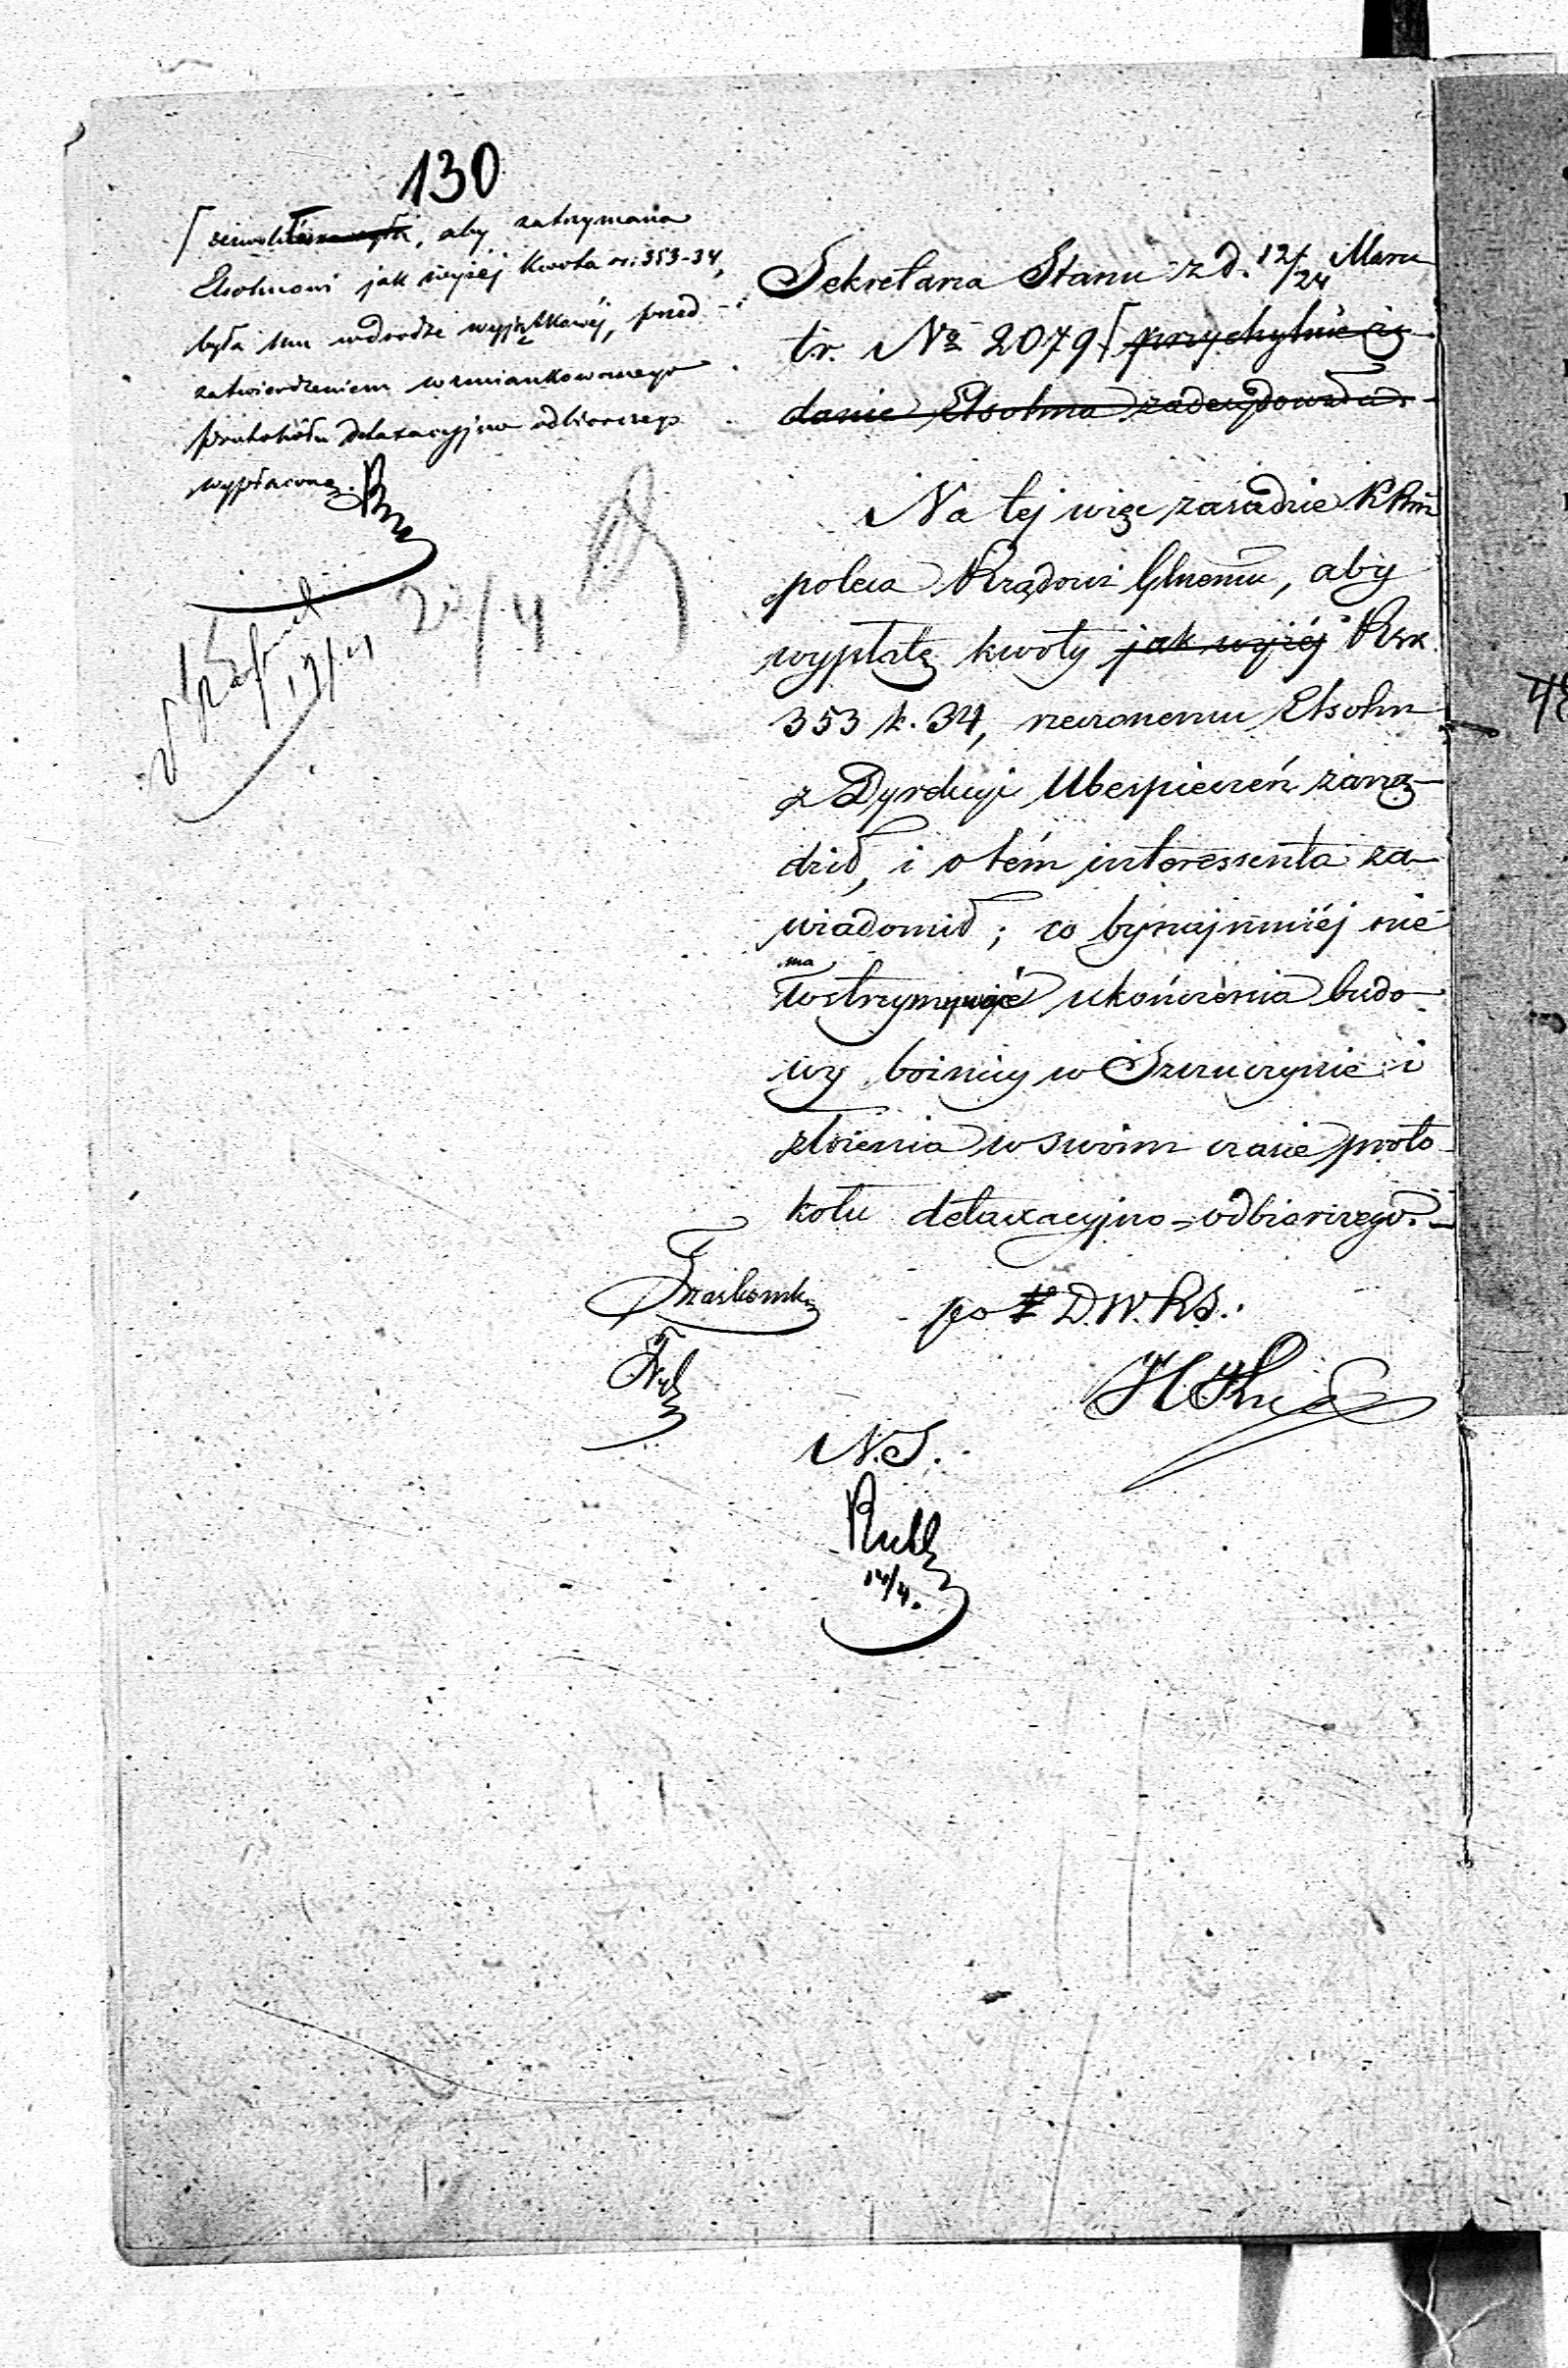 130
zezwoliła, aby zatrzymana
Elsohnowi jak wyżej kwota rs: 353-34,
była mu w drodze wyjątkowéj, przed
zatwierdzeniem wzmiankowanego
protokółu detaxacyjno odbiorczego
wypłaconą.
22/4
19/4
Sekretarza Stanu z d. 12/24 Marca
tr. No 2079 przychylnie żą
danie Elsohna zadecydowała.
Na tej więc zasadzie KRz
poleca Rządowi Glnemu, aby
wypłatę kwoty jak wyżéj Rsr.
353 k. 34, rzeczonemu Elsohn
z Dyrekcyi Ubezpieczeń zarzą-
dził, i o tém interessenta za-
wiadomił; co bynajmniéj nie
ma
wstrzymywać ukończenia budo-
wy bożnicy w Szczuczynie i
złożenia w swoim czasie proto-
kołu detaxacyjno-odbiorczego.
po D. W. RS.
N.S.
14/4.